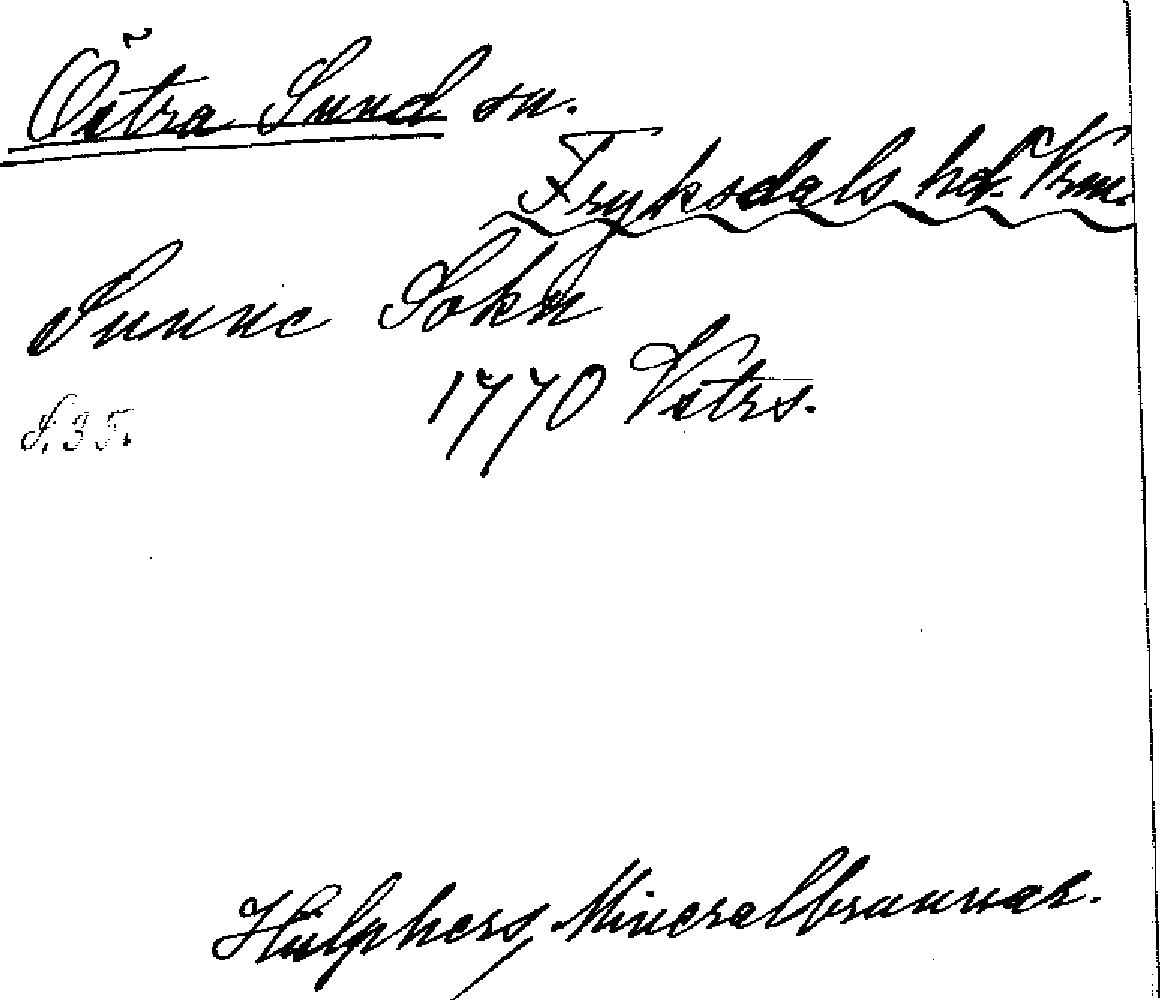 Östra Sund sn.
Fryksdals hd. Vrm.
Sunne Sokn
1770 Vstrs.
S. 35.
Hülphers, Mineralbrunnar.